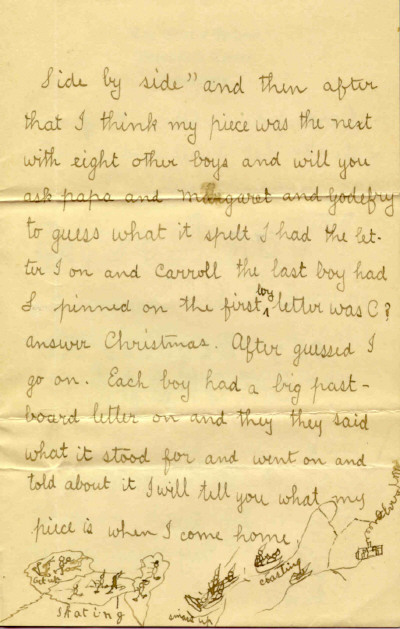 Side by side" and then after
that I think my piece was the next
with eight other boys and will you
ask papa and Margaret and Godefry
to guess what it spelt I had the let-
ter I on and Carroll the last boy had
S pinned on the first boy letter was C?
answer Christmas. After guessed I
go on. Each boy had a big past-
board letter on and they they said
what it stood for and went on and
told about it I will tell you what my
piece is when I come home.
skating
coasting